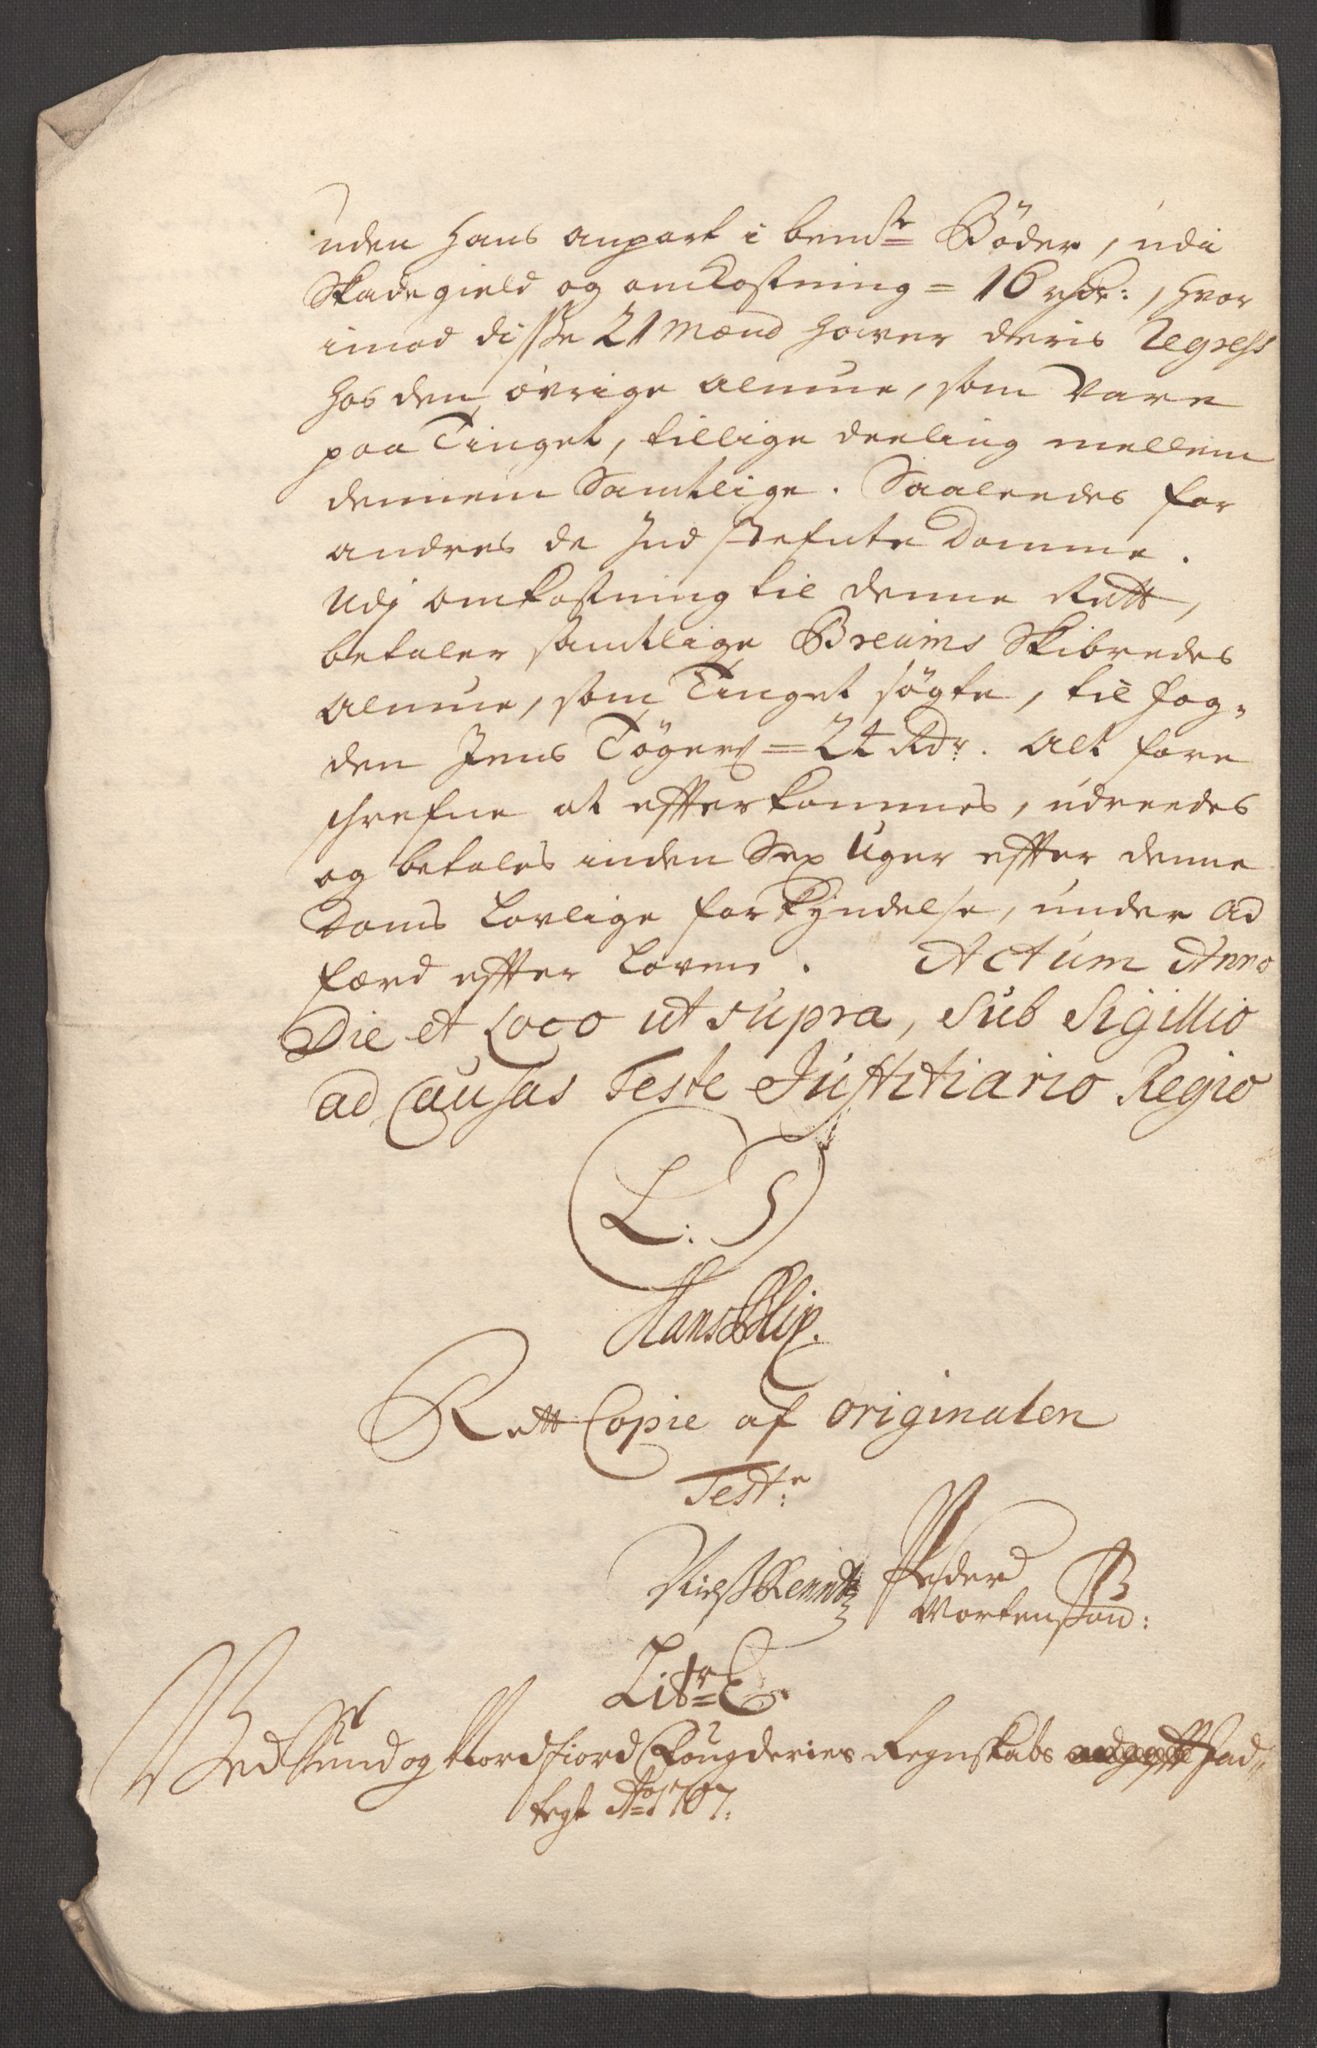 uden hans anpart i bemte Böder, udi
Skadegield og omkostning = 16 rdr:, hvor
imod disse 21 Mænd haver deris Regress
hos den övrige almue, som vare
paa Tinget, tillige deeling mellem
dennem Samtlige. Saaleedes for
andres de Ind stefnte Domme.
Udj omkostning til denne Rett,
betaler samtlige Breims Skibredes
almue, som Tinget søgte, til Fog-
den Jens Tøgers = 24 Rdr. Alt fore
schrefne at efterkommes, udreedes
og betales inden Sex Uger efter denne
Doms Lovlige forkyndelse, under ad
færd efter Loven. Actum Anno
Die et Loco ut supra, Sub Sigillio
ad Causas Teste Justitiario Regio
L. S
Hans Blix.
Rett Copie af originalen
Teste:
Peder
Mortenssøn:
Litr E.
Ved Sund og Nordfiord Fougderies Regnskabs Jnd-
legt Ao 1707: